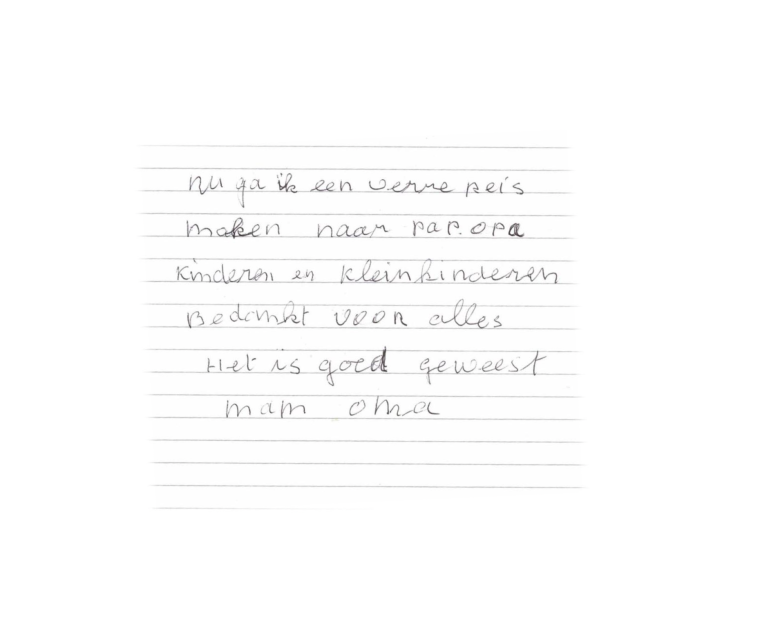 nu ga ik een verre reis
maken naar pap. opa
kinderen en kleinkinderen
Bedankt voor alles
Het is goed geweest
mam oma